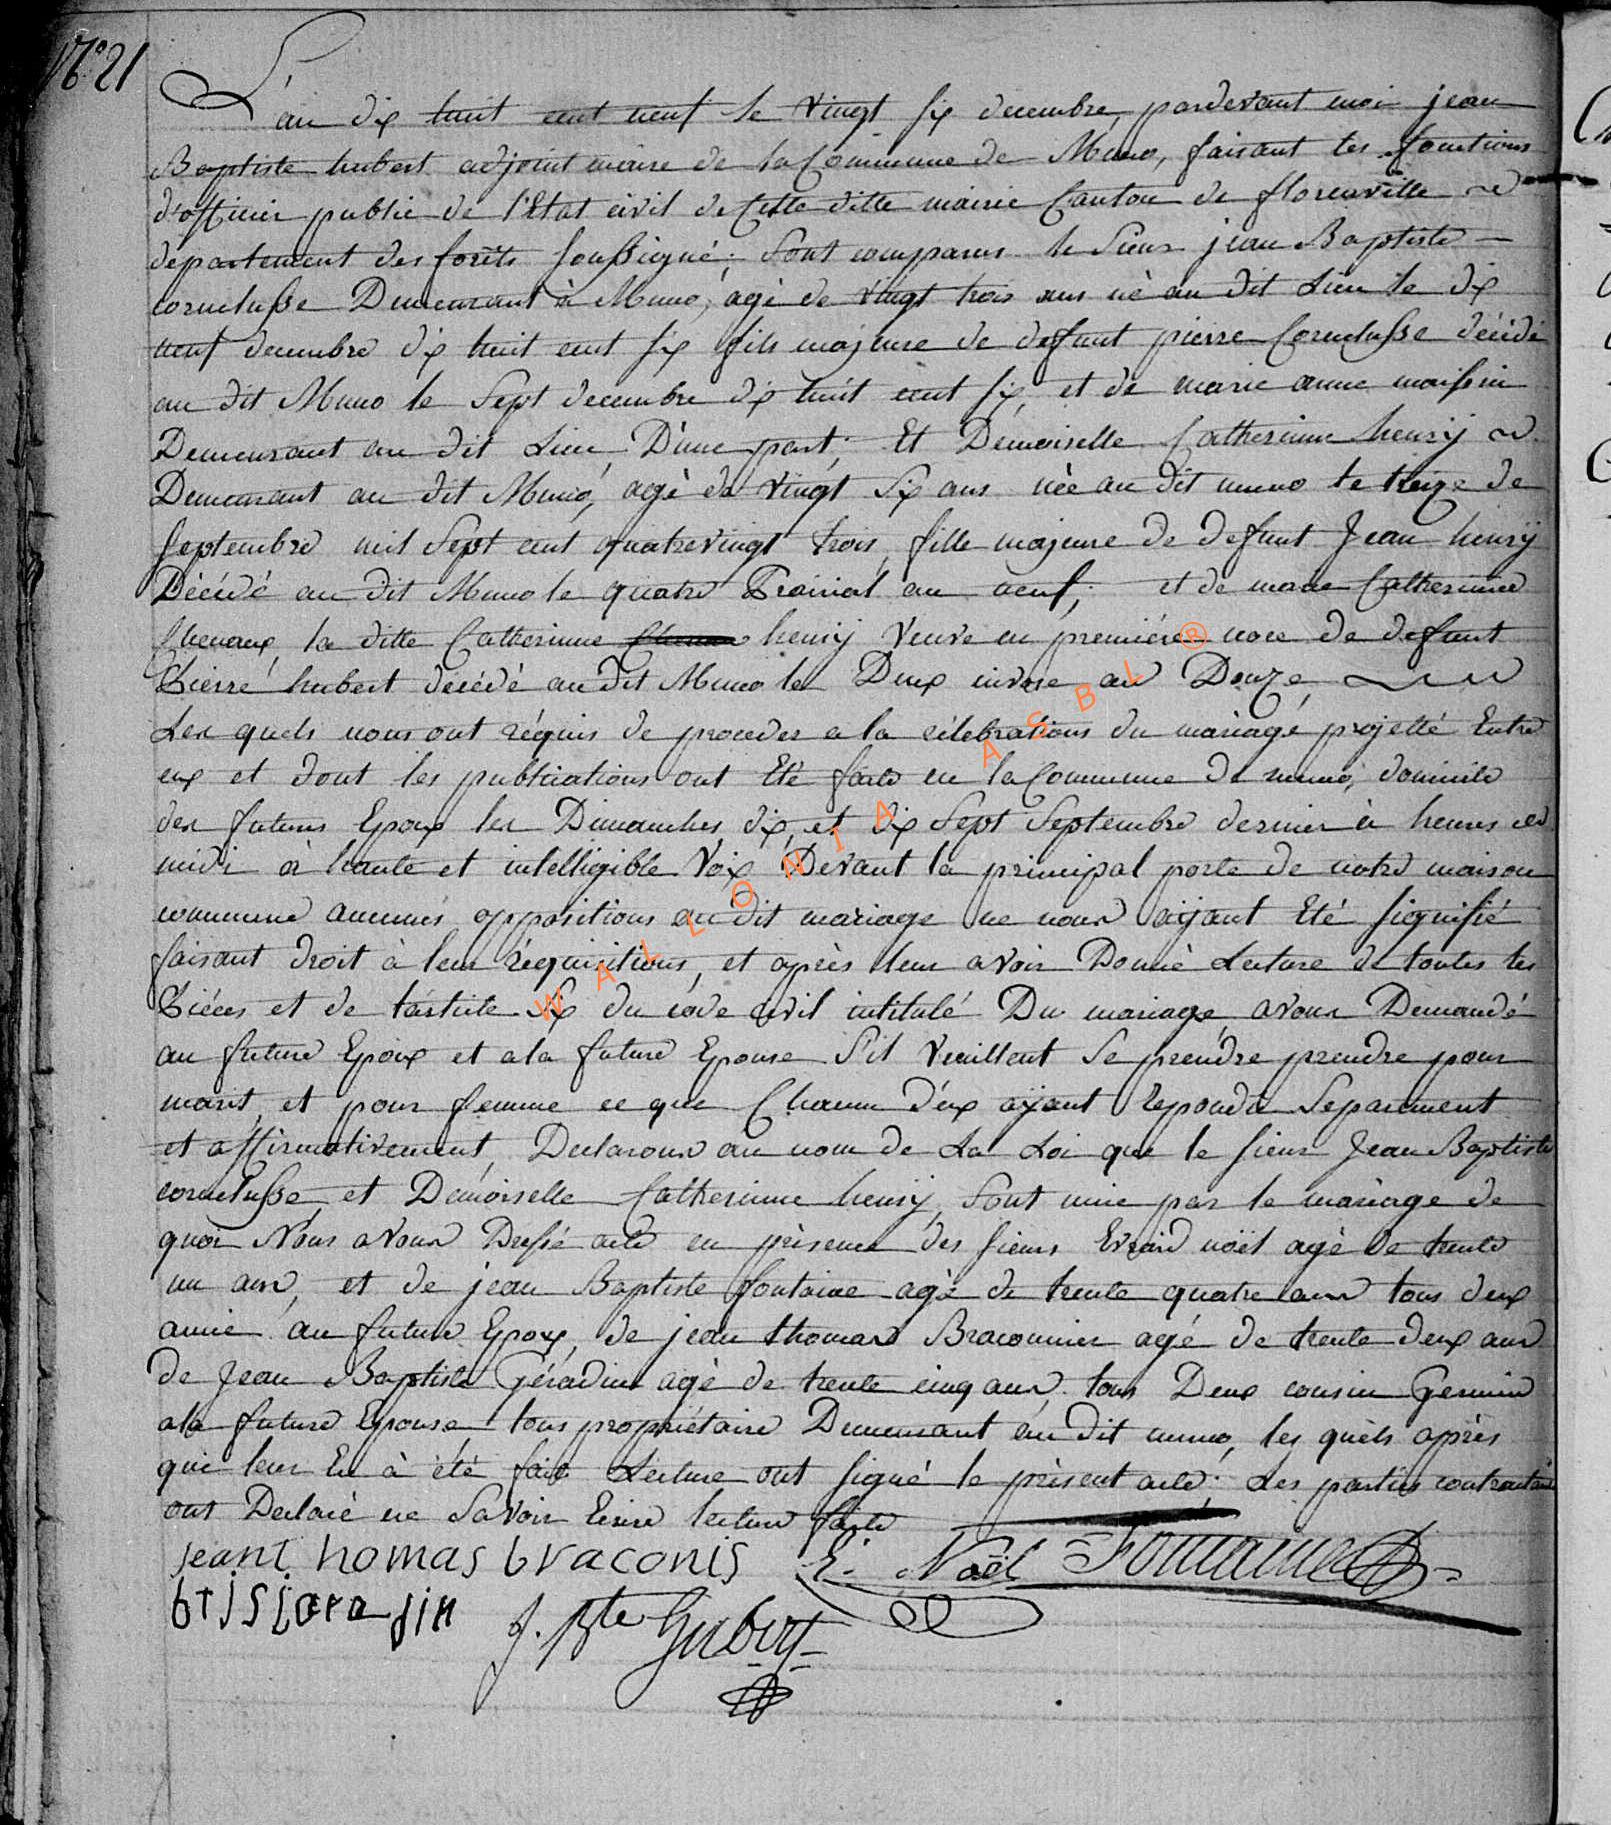 N.° 21
L'an dix huit cent neuf le vingt six decembre, pardevant moi jean
Baptiste hubert adjoint maire de la Commune de Muno, faisant les fonctions
d'officier public de l'Etat civil de Cette ditte mairie Canton de florenville
departement des forêts soussigné; sont comparus le Sieur jean Baptiste
cornelusse Demeurant à Muno, agé de vingt trois ans né au dit Lieu le dix
neuf decembre dix huit cent six fils majeure de defunt pierre Cornelusse décédé
au dit Muno le Sept decembre dix huit cent six, et de marie anne maissin
Demeurant au dit Lieu, D'une part; Et Demoiselle Catherinne henrÿ
Demeurant au dit Muno, agé de vingt Six ans née au dit muno le treize de
Septembre mil Sept cent quatrevingt trois, fille majeure de defunt Jean henrÿ
Décédé au dit Muno le quatre Prairial an neuf; et de marie Catherinne
la ditte Catherinne henrÿ Veuve en premiére noce de defunt
Pierre hubert décédé au dit Muno le Deux nivose an Douze,
Les quels nous ont réquis de proceder a la célébrations du mariagé projetté Entre
eux et dont les publications ont Eté faite en la Commune de muno, domicile
des futurs Epoux les Dimanches dix, et dix Sept Septembre dernier à heures de
midi à haute et intelligible Voix Devant la principal porte de notre maison
commune aucunes oppositions au dit mariage ne nous aÿant Eté signifié
faisant droit à leur réquisitions, et après leur avoir Donné Lecture de toutes les
Piéces et de l'article Six du code civil intitulé Du mariage, avons Demandé
au future Epoux et a la future Epouse S'il Veuillent Se prendre prendre pour
marit, et pour femme ce que Chacun d'eux aÿant Repondu Separement
et affirmativement, Declarons au nom de La Loi que le sieur Jean Baptiste
cornelusse, et Démoiselle Catherinne henrÿ, sont unie par le mariage de
quoi Nous avons Dressé acte en présence des sieurs Evrard noël agé de trente
un ans, et de jean Baptiste fontaine agé de trente quatre ans tous deux
amie au future Epoux, de jean thomas Braconnier agé de trente deux ans
de Jean Baptiste Géradin agé de trente cinq ans tous Deux cousin Germin
a la future Epouse, tous propriétaire Demeurant au dit muno, les quels après
que leur En à été fait Lecture ont signé le présent acte; Les parties contractante
ont Declaré ne Savoir Ecrire lecture faite
jean t homas braconis E. Noël Fontaine
J. Bte Hubert
WALLONIA ASBL ®